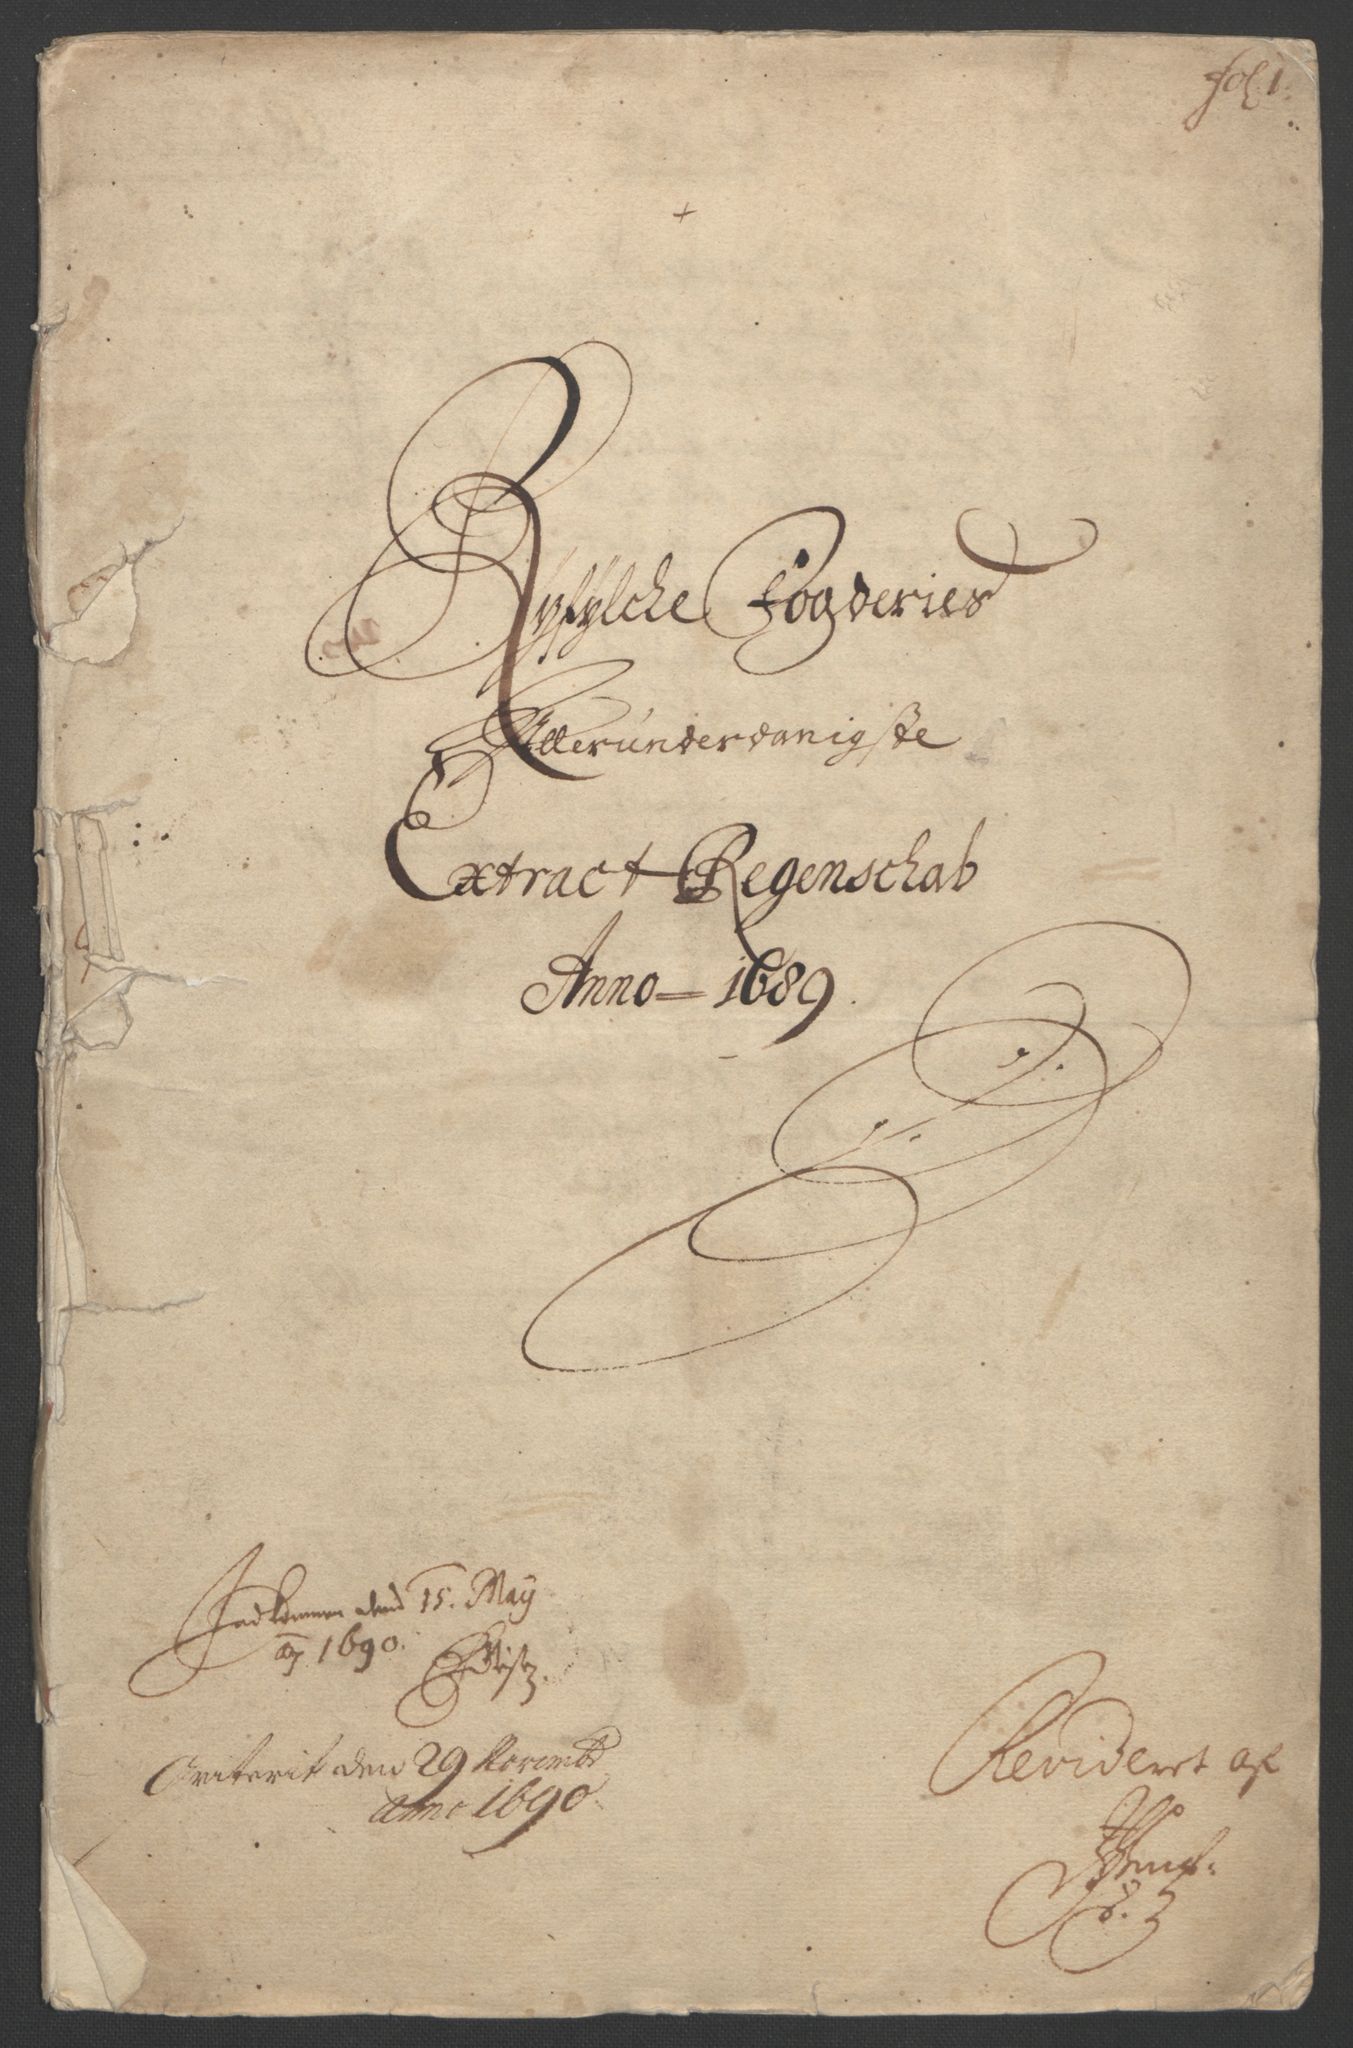 fol. 1.
Ryfylche Fogderies
Allerunderdanigste
Extract Regenschab
Anno 1689.
Indkommen dend 15. Maÿ
ao 1690.
Qviterit den 29 Novembr
anno 1690
Revideret af